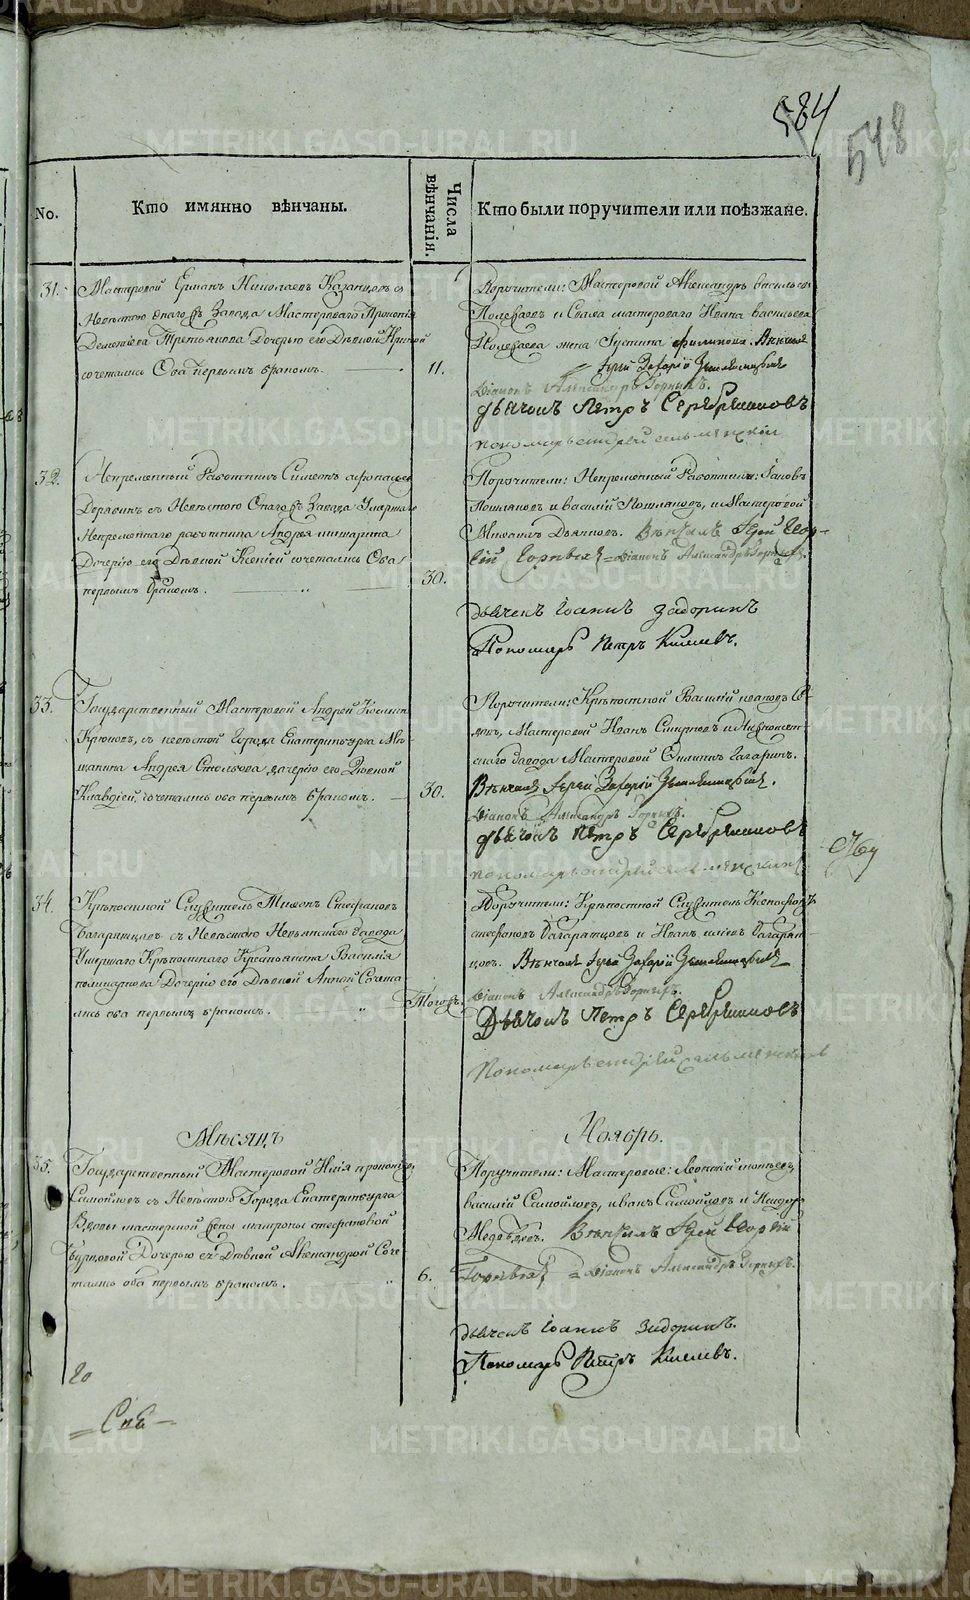 584
548
No.
Кто имянно вѣнчаны.
Числа вѣнчанія.
Кто были поручители или поѣзжане.
31.
Мастеровой Ермилъ Николаевъ Казанцовъ с
Невѣстою онаго Завода Мастероваго Прокопія
Дементіева Третьякова Дочерью его Дѣвкой Ириной
сочетались Оба первымъ бракомъ.
11.
Поручители: Мастеровой Александръ васильевъ
Полежаевъ и Сваха мастероваго Ивана васильева
Полежаева жена Іустина филипова. Вѣнчалъ
Іерей Захарій
Діаконъ Александръ Горныхъ.
дьячокъ Петръ Серебрениковъ
пономарь
32.
Непременный Работникъ Симеонъ афонасьевъ
съ Невѣстою Онаго Завода Умершаго
Непременнаго работника Андрея
Дочерію его Дѣвкой Ксеніей сочетались Оба
первымъ бракомъ.
30.
Поручители: Непременный Работникъ: Іаковъ
и василій и Мастеровой
Вѣнчалъ Іерей Геор-
гій = Діаконъ Александръ Горныхъ.
дьячекъ Іоаннъ Задоринъ
Пономарь Петръ Киселевъ.
33.
Государственный Мастеровой Андрей Козминъ
Крюковъ, съ невѣстой Города Екатеринбурга Мѣ-
щанина Андрея дочерію его Дѣвкой
Клавдіей, сочетались оба первымъ бракомъ.
30.
Поручители: Крѣпостной Василій ивановъ
Мастеровой Иванъ Смирновъ и
скаго завода Мастеровой Филипъ Гагаринъ.
Вѣнчалъ Іерей Захарій
Діаконъ Александръ Горныхъ.
дьячокъ Петръ Серебрениковъ
пономарь
34.
Крѣпостной Служитель Тихонъ Стефановъ
Багарятцовъ съ Невѣстою Невьянскаго Завода
Умершаго Крѣпостнаго Крестьянина Василія
Дочерію его Дѣвкой Анной Сочета
лись оба первымъ бракомъ.
Тогожъ.
Поручители: Крѣпостной Служитель Ксенофонтъ
стефановъ Багаратцовъ и Иванъ Багаря-
цовъ. Вѣнчалъ Іерей Захарій
Діаконъ Александръ Горныхъ.
Дьячокъ Петръ Серебрениковъ
Пономарь
Мѣсяцъ
Ноябрь.
35.
Государственный Мастеровой Илія прокопіевъ
Самойловъ съ Невѣстою Города Екатеринбурга
Вдовы мастерской жены матроны стефановой
Дочерью ея Дѣвкой Александрой Соче-
тались оба первымъ бракомъ.
6.
Поручители: Мастеровые: Леонтій
василій Самойловъ, иванъ Самойловъ и
Медвѣдевъ. Вѣнчалъ Іерей Георгій
= Діаконъ Александръ Горныхъ.
дьячекъ Іоаннъ Задоринъ.
Пономарь Петръ Киселевъ.
METRIKI.GASO-URAL.RU